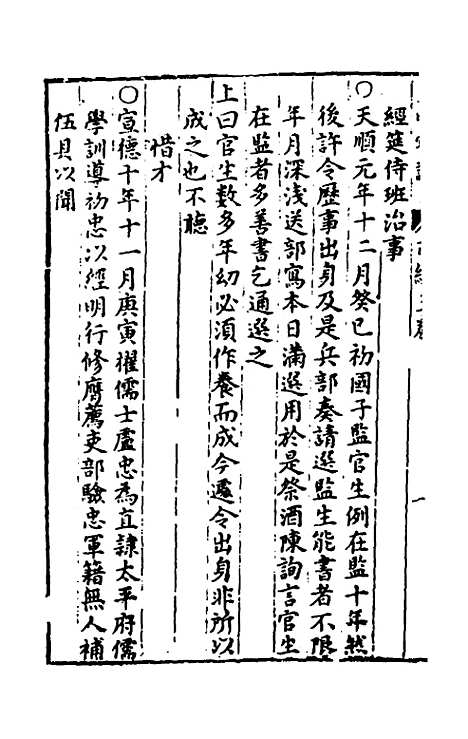 經筵侍班治事
○天順元年十二月癸巳初國子監官生例在監十年然
後許令歷事出身及是兵部奏請選監生能書者不限
年月深淺送部寫本日滿選用於是祭酒陳詢言官生
在監者多善書乞通選之
上曰官生數多年幼必須作養而成今遽令出身非所以
成之也不聽
惜才
○宣德十年十一月庚寅擢儒士盧忠為直隷太平府儒
學訓導初忠以經明行修膺薦吏部驗忠軍籍無人補
伍具以聞